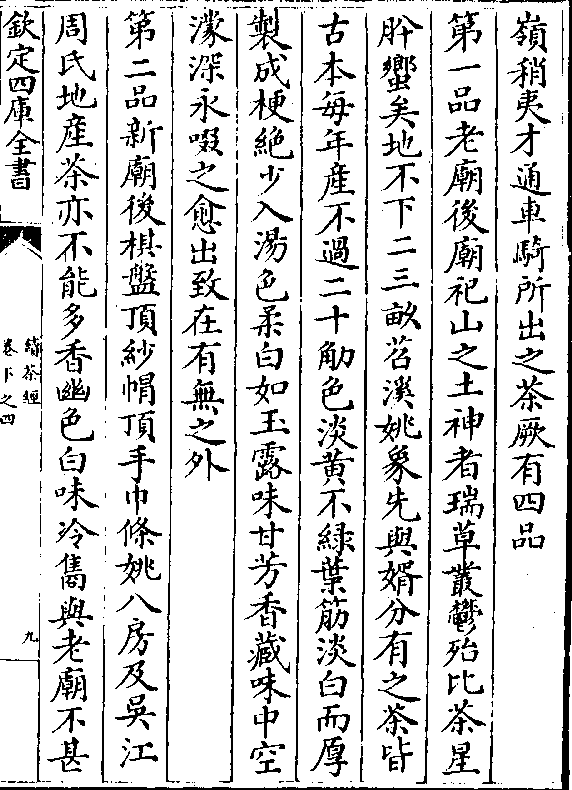 嶺稍夷才通車騎所出之茶厥有四品
第一品老廟後廟祀山之土神者瑞草叢鬱殆比茶星
肸蠁矣地不下二三畝苕溪姚象先與婿分有之茶皆
古本每年産不過二十觔色淡黄不緑葉筋淡白而厚
製成梗絶少入湯色柔白如玉露味甘芳香藏味中空
濛深永啜之愈出致在有無之外
第二品新廟後棋盤頂紗帽頂手巾條姚八房及吳江
周氏地産茶亦不能多香幽色白味冷雋與老廟不甚
欽定四庫全書
續茶經
卷下之四
九